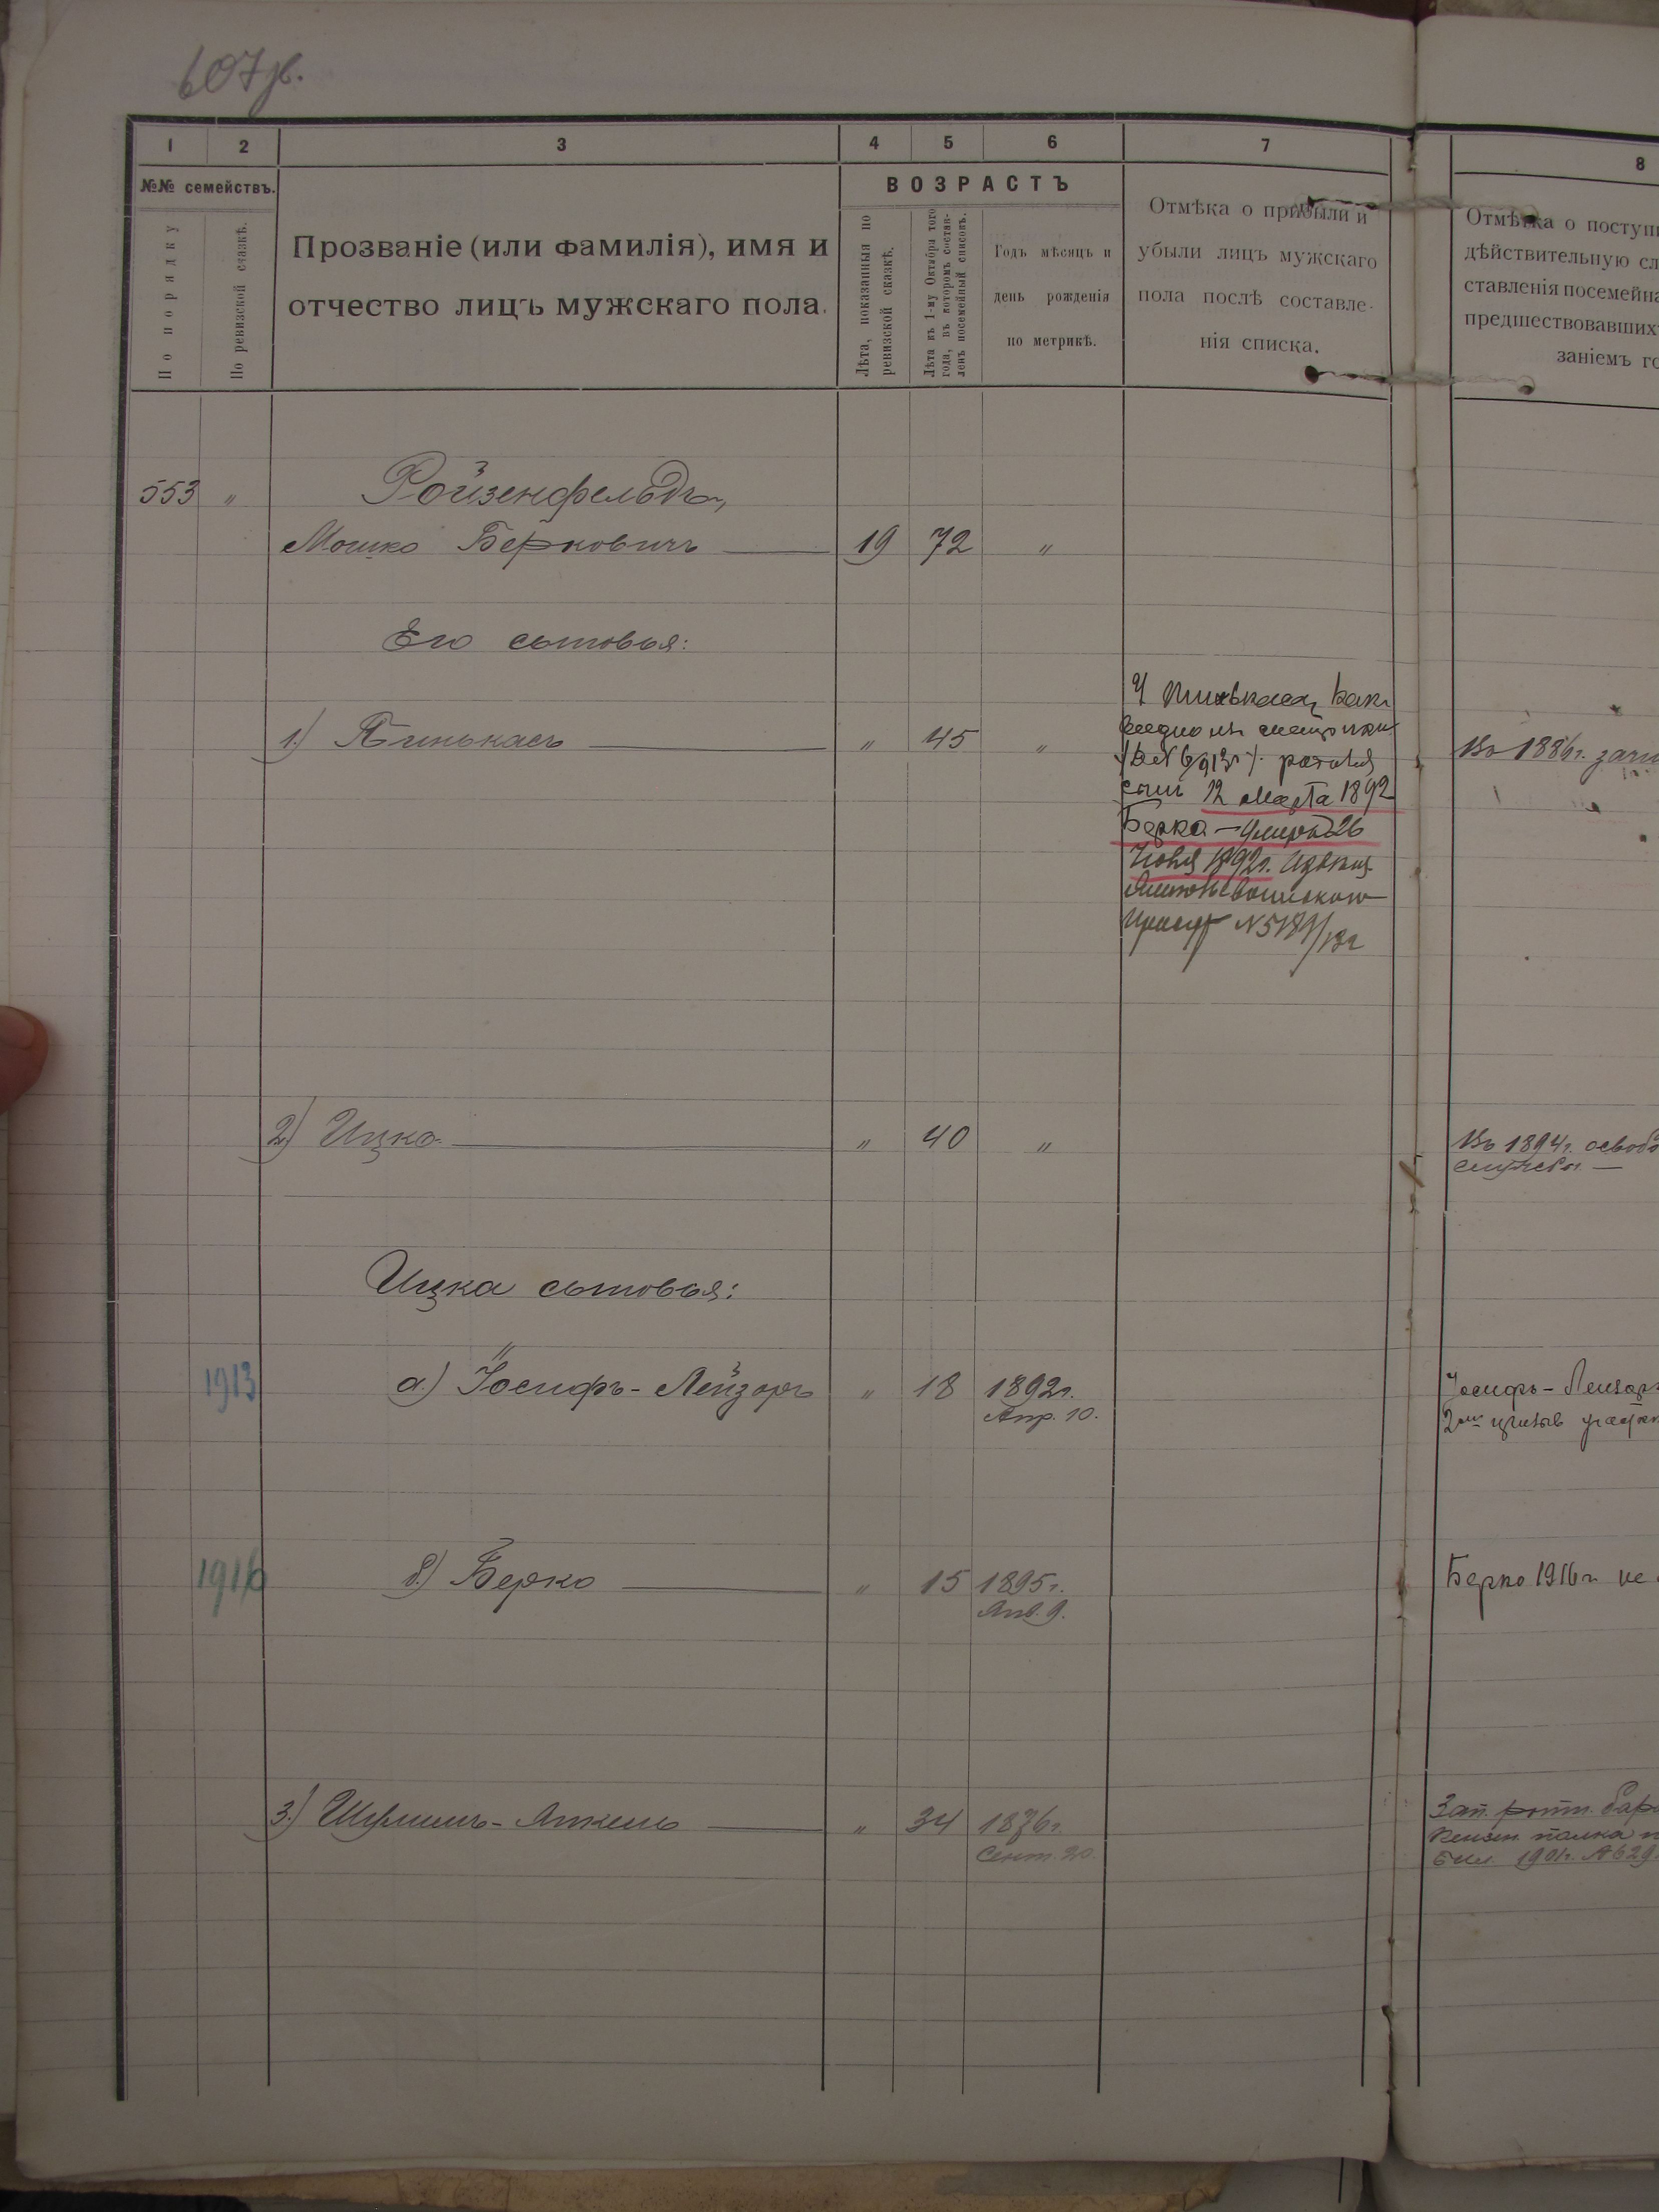 607 об.
1 2 3 4 5 6 7 8
№№ семействъ.
По порядку
По ревизской сказкѣ.
Прозваніе (или фамилія), имя и
отчество лицъ мужскаго пола.
ВОЗРАСТЪ
Лѣта, показанныя по
ревизской сказкѣ.
Лѣта къ 1-му Октября того
года, въ которомъ состав-
ленъ посемейный списокъ.
Годъ мѣсяцъ и
день рожденія
по метрикѣ.
Отмѣтка о прибыли и
убыли лицъ мужскаго
пола послѣ составле-
нія списка.
Отмѣтка о поступ
дѣйствительную сл
ставленія посемейна
предшествовавших
заніемъ го
553 "
Ройзенфельдъ,
Мошко Берковичъ 19 72 "
Его сыновья:
1.) Пинькасъ " 45 "
У Пинькаса, как
видно изъ метрики
родился
сынъ 12 Марта 1892
Берко – умеръ 26
1892г.
Въ 1886г. зачи
2) Ицко " 40 "
Въ 1894г. освобо
службы. —
Ицка сыновья:
1913 а.) Іосифъ-Лейзоръ " 18 1892г.
Апр. 10.
Іосифъ-Лейзор
1916 б.) Берко " 15 1895г.
Янв. 9.
Берко 1916г не
3.) Шулимъ-Янкель " 34 1876г.
Сент. 20.
Зап.
полка
1901г. № 629